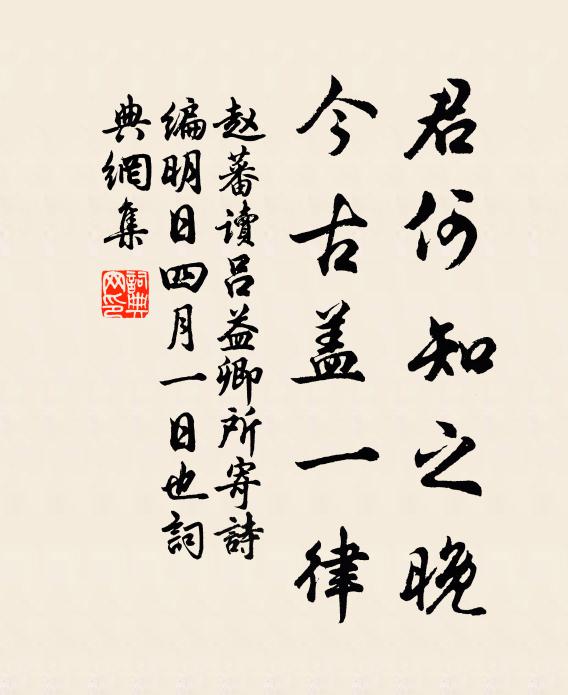 君何知之晚
今古盖一律
赵蕃讀吕益卿所寄詩
编明日四月一日也詞
典網集
詞典网印